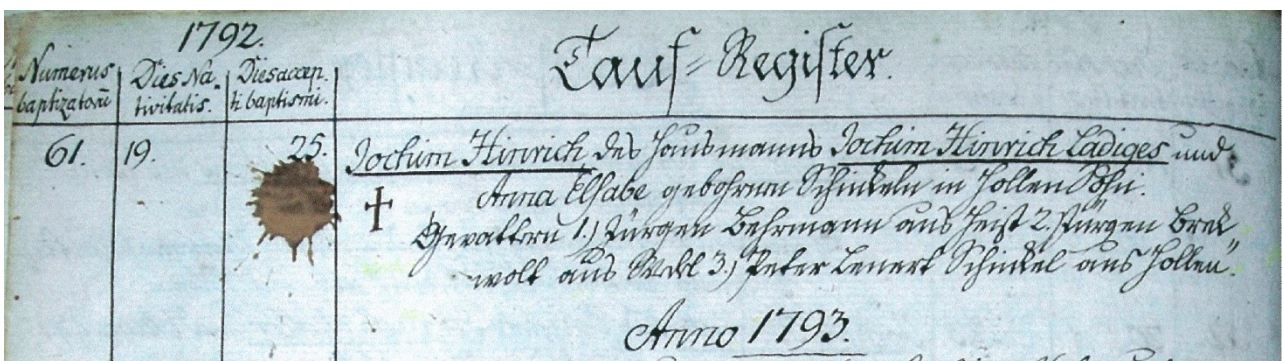 1792.
Tauf-Register.
Numerus baptizatorū
Dies Na-
tivitatis.
Dies accep-
ti baptismi.
61. 19. 25. Jochim Hinrich des Hausmanns Jochim Hinrich Ladiges und
Anna Elsabe gebohrnen Schinkeln in Hollen Sohn.
Gevattern 1.) Jürgen Behrmann aus Heist 2. Jürgen Brek
wolt aus 3.) Peter Lenert Schinkel aus Hollen
Anno 1793.